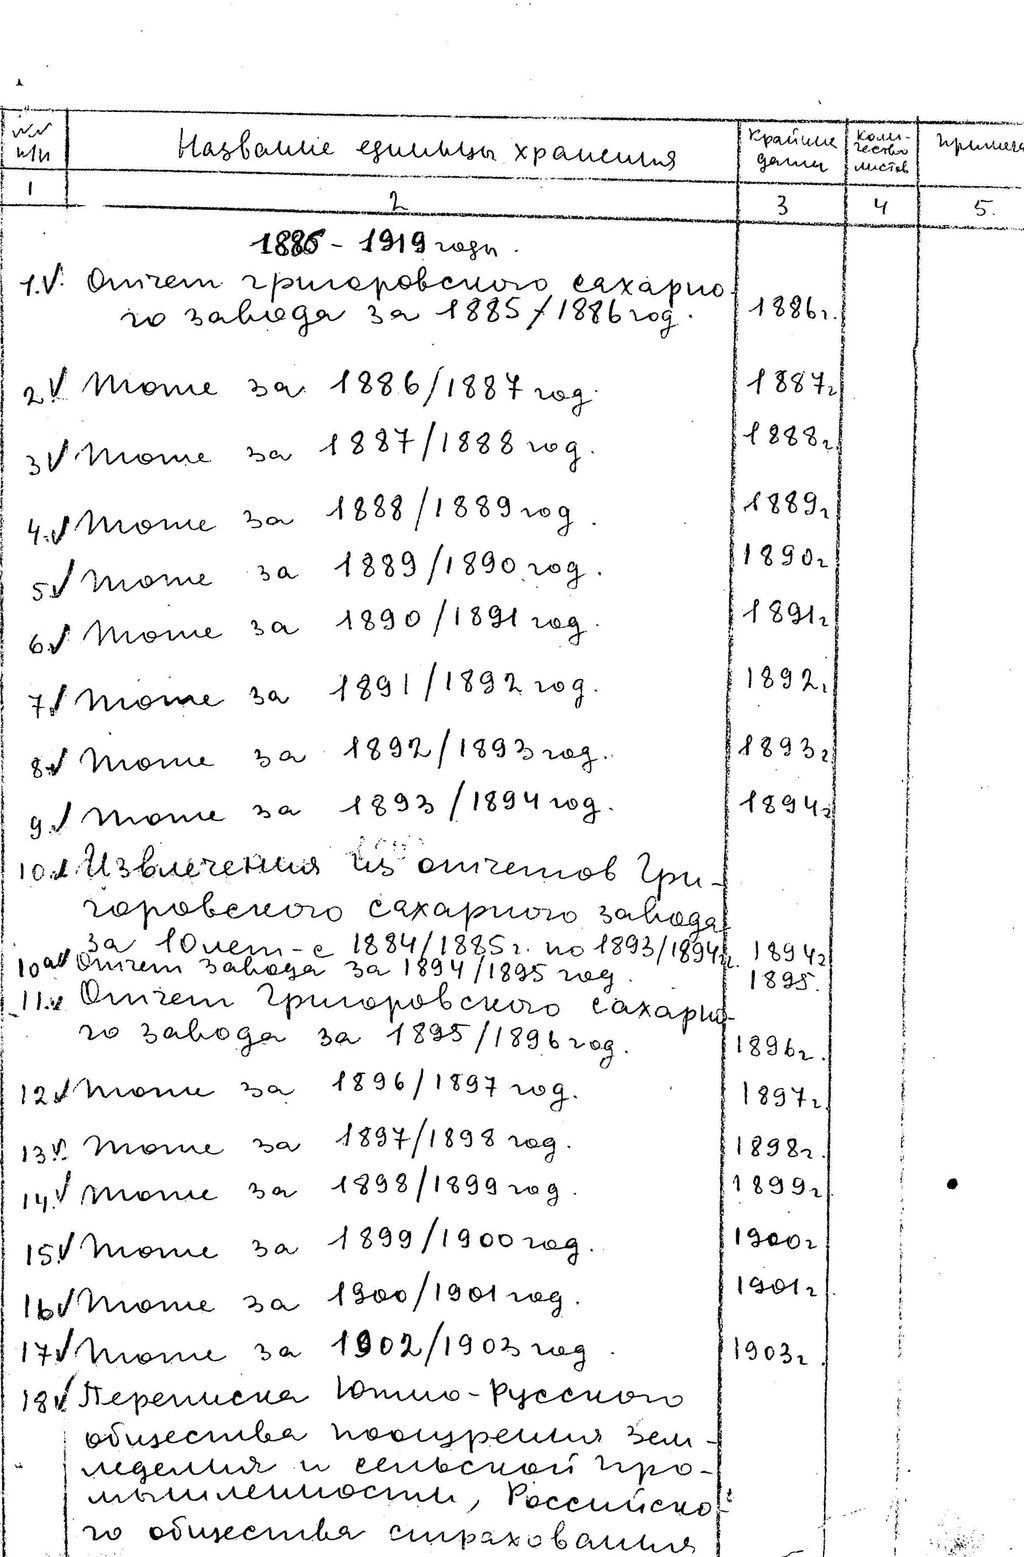 №№ п/п | Название единицы хранения | Крайние даты | Коли-чество листов | Примеча
1 | 2 | 3 | 4 | 5.
1885 - 1919 годы.
1. Отчет григоровского сахарно-
го завода за 1885/1886 год. 1886г.
2 Тоже за 1886/1887 год. 1887г
3 Тоже за 1887/1888 год. 1888г.
4. Тоже за 1888/1889 год. 1889г
5 Тоже за 1889/1890 год. 1890г
6. Тоже за 1890/1891 год. 1891г
7 Тоже за 1891/1892 год. 1892г
8 Тоже за 1892/1893 год. 1893г
9. Тоже за 1893/1894 год. 1894г
10. Извлечения из отчетов Гри-
горовского сахарного завода
за 10 лет - с 1884/1885г. по 1893/1894г. 1894г
10а Отчет завода за 1894/1895 год. 1895.
11. Отчет Григоровского сахарно-
го завода за 1895/1896 год. 1896г.
12 Тоже за 1896/1897 год. 1897г.
13 Тоже за 1897/1898 год. 1898г.
14 Тоже за 1898/1899 год. 1899г
15 Тоже за 1899/1900 год. 1900г
16 Тоже за 1900/1901 год. 1901г
17 Тоже за 1902/1903 год. 1903г.
18 Переписка Южно-Русского
общества поощрения зем-
леделия и сельской про-
мышленности, Российско-
го общества страхования